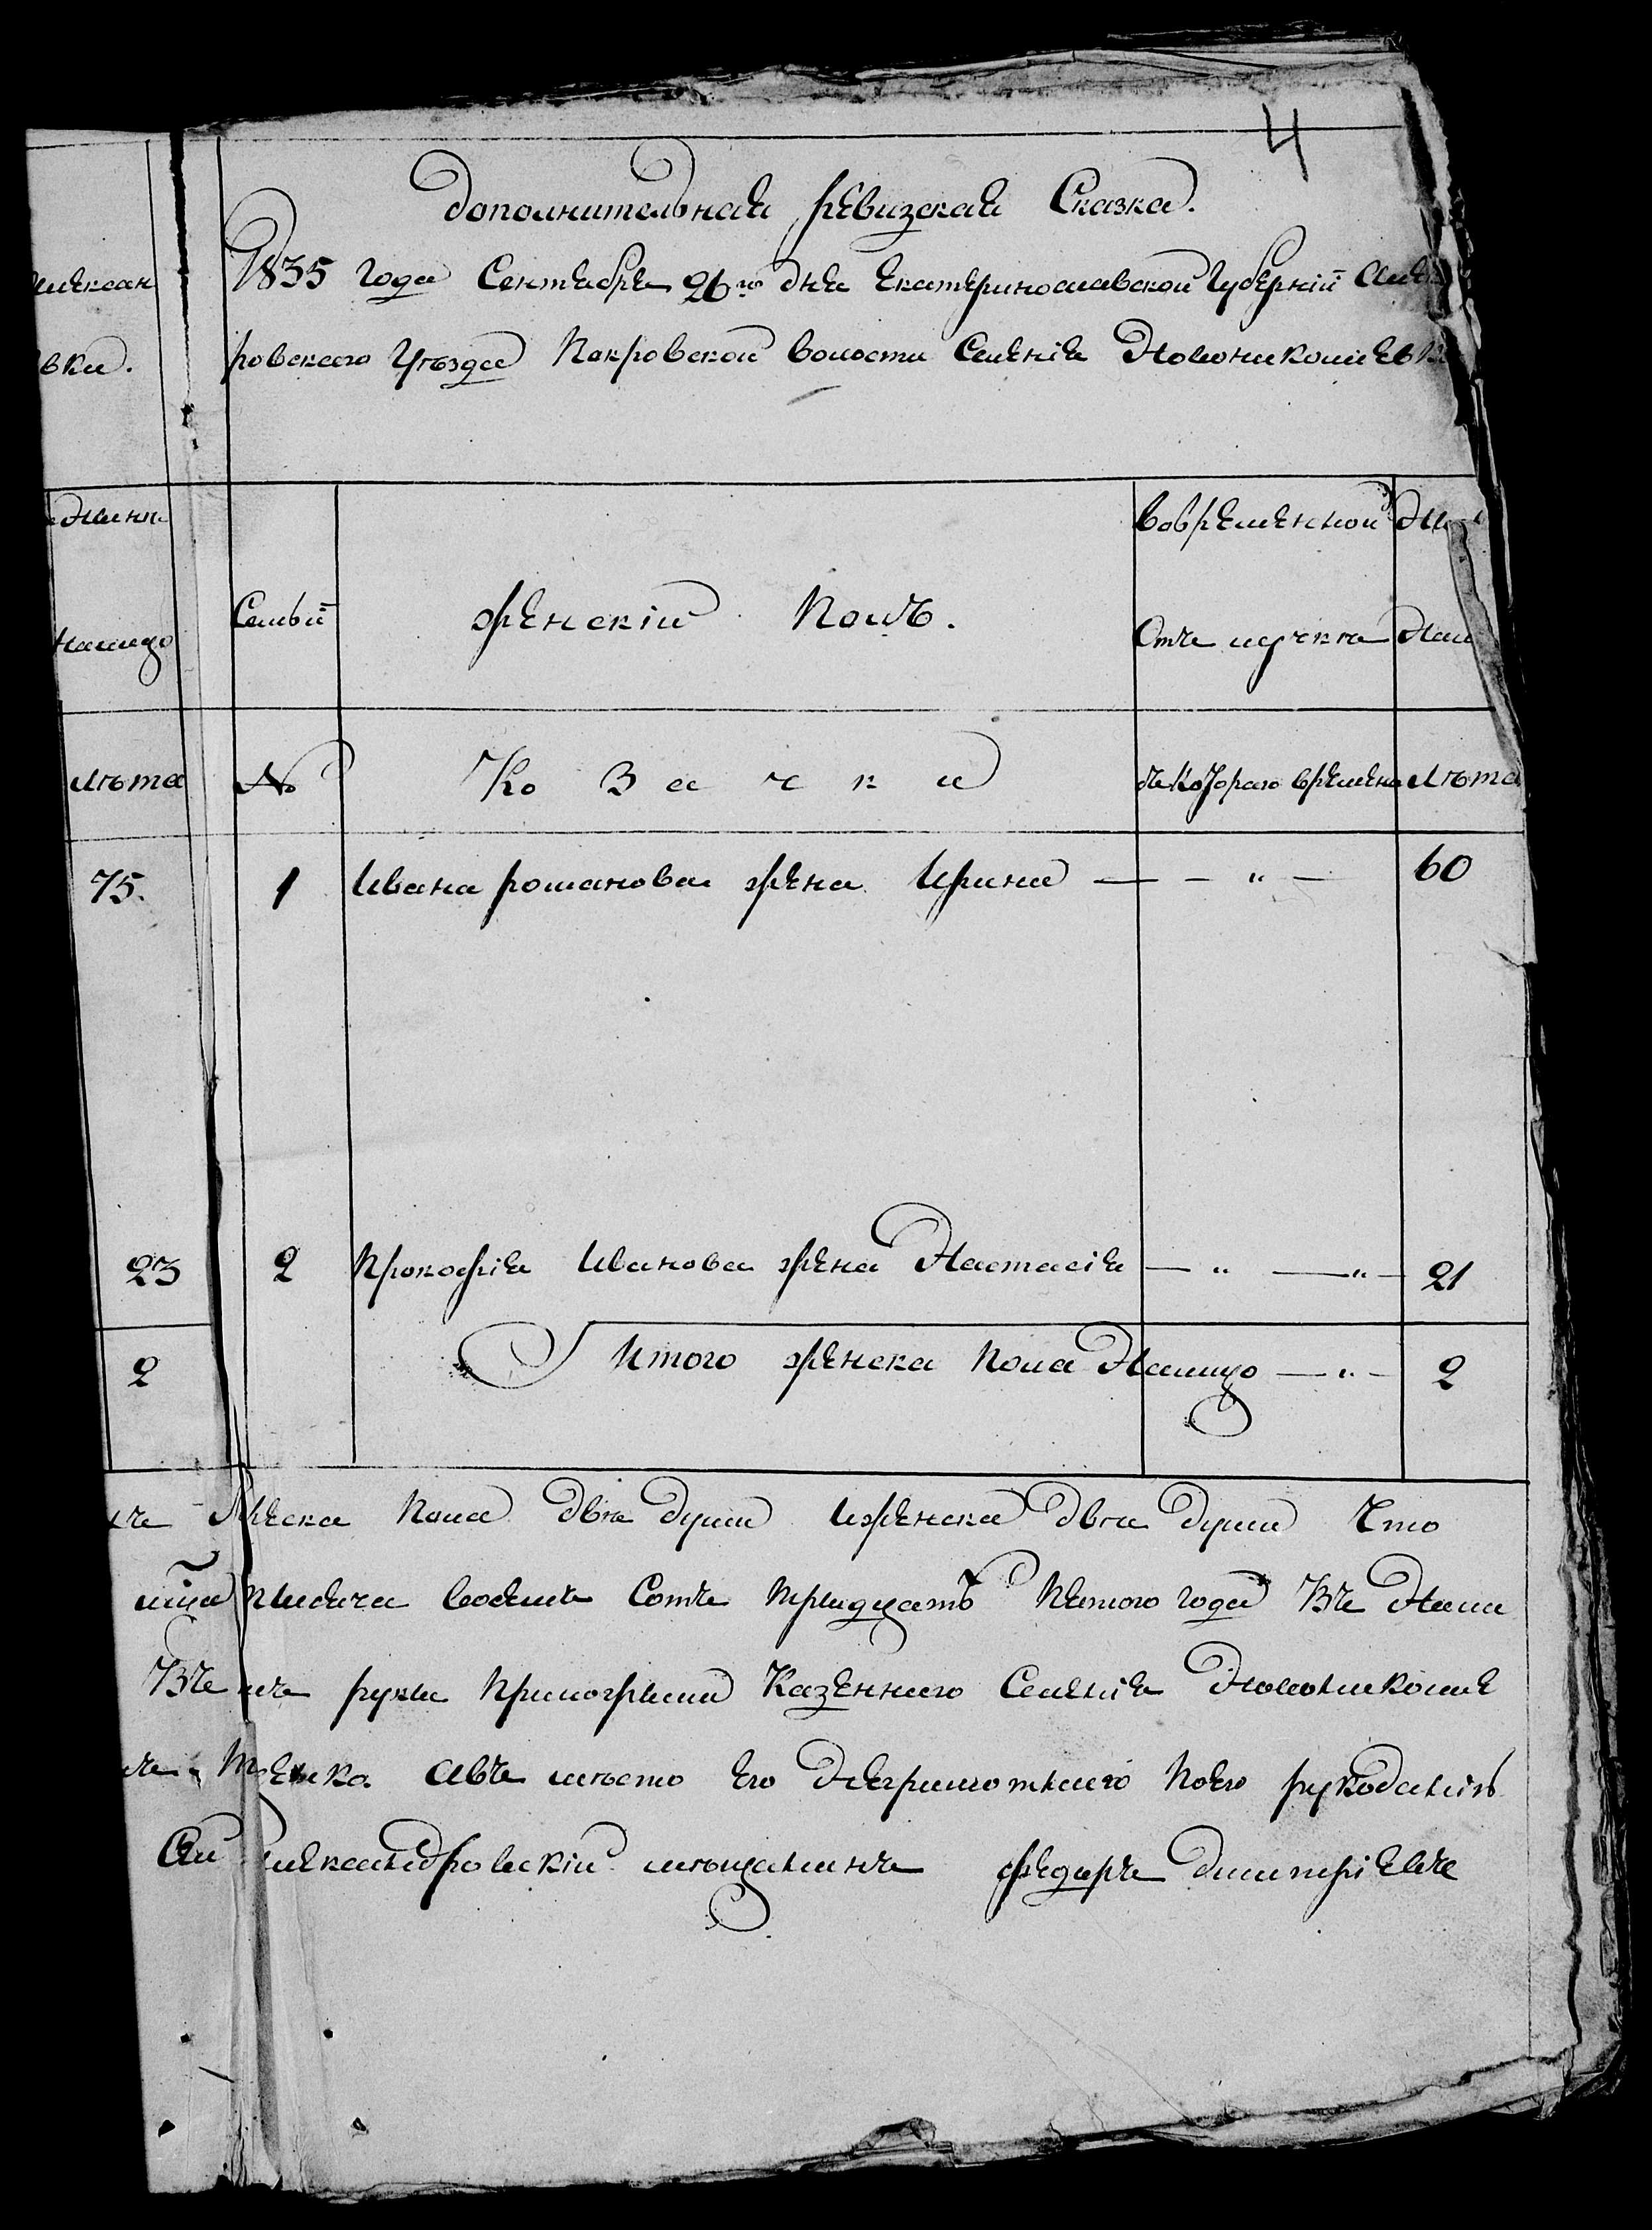 4
Дополнительная ревизская Сказка.
1835 года Сентября 26го дня Екатеринославской Губернiи Алек
ровскаго Уѣзда Покровской волости Селенiя Новониколаевк
Алексан
вки.
Семьи
Женскiй Полъ.
Вовременной
Отлучкѣ
налицо
№
Козачки
съ Котораго времени
Лѣта
лѣта
75.
1
Ивана романова жена Ирина — — " —
60
23
2
Прокофiя Иванова жена Настасiя — " — " —
21
2
Итого женска пола Налицо — " —
2
Мужеска Пола двѣ души Иженска двѣ души Что
тысяча восемь Сотъ тридцать Пятого года Къ
руки приложили Казеннаго Селенiя Новониколае
Авъ мѣсто его Неграмотнаго поего рукоданiю
Александровскiй мѣщанинъ Федоръ Дмитрiевъ